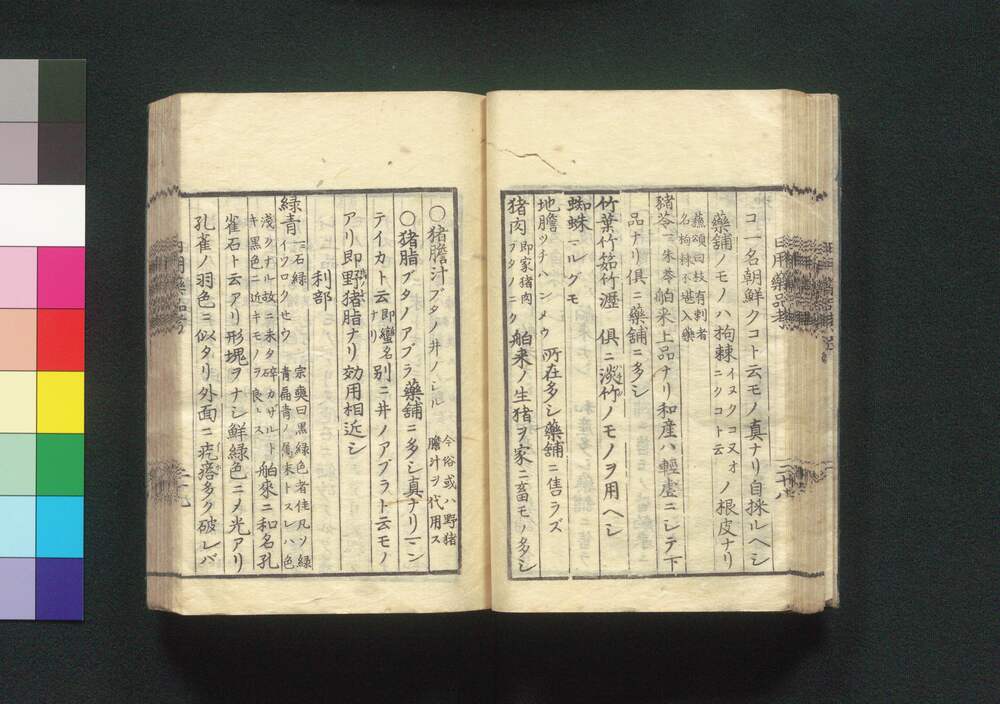 コ一名朝鮮クコト云モノ真ナリ自採ルヘシ
蘓頌曰枝有刺者
名枸棘不堪入藥
藥舗ノモノハ拘棘イヌクコ又オニクコト云ノ根皮ナリ
猪苓一ニ朱苓舶来上品ナリ和産ハ輕虚ニシテ下
品ナリ倶ニ藥舗ニ多シ
竹葉竹茹竹瀝 倶ニ淡竹ノモノヲ用ヘシ
蜘蛛マルグモ
地膽ツチハンメウ 所在多シ藥舗ニ售ラズ
猪肉即家猪肉ブタノニク 舶来ノ生猪ヲ家ニ畜モノ多シ
〇猪膽汁ブタノ井ノシル 今俗或ハ野猪膽汁ヲ代用ス
〇猪脂ブタノアブラ藥舗ニ多シ真ナリマン
テイカト云即蠻名ナリ別ニ井ノアブラト云モノ
アリ即野猪脂ナリ効用相近シ
利部
緑青一ニ石緑イワロクセウ 宗奭曰黒緑色者佳凡ソ緑青扁青ノ属末トスレハ色
淺クナル故ニ未タ碎カザルトキ黒色ニ近キモノヲ良トス 舶來ニ和名孔
雀石ト云アリ形塊ヲナシ鮮緑色ニメ光アリ
孔雀ノ羽色ニ似タリ外面ニ疙瘩多ク破レバ
日用藥品考
二十八
日用藥品考
二十九